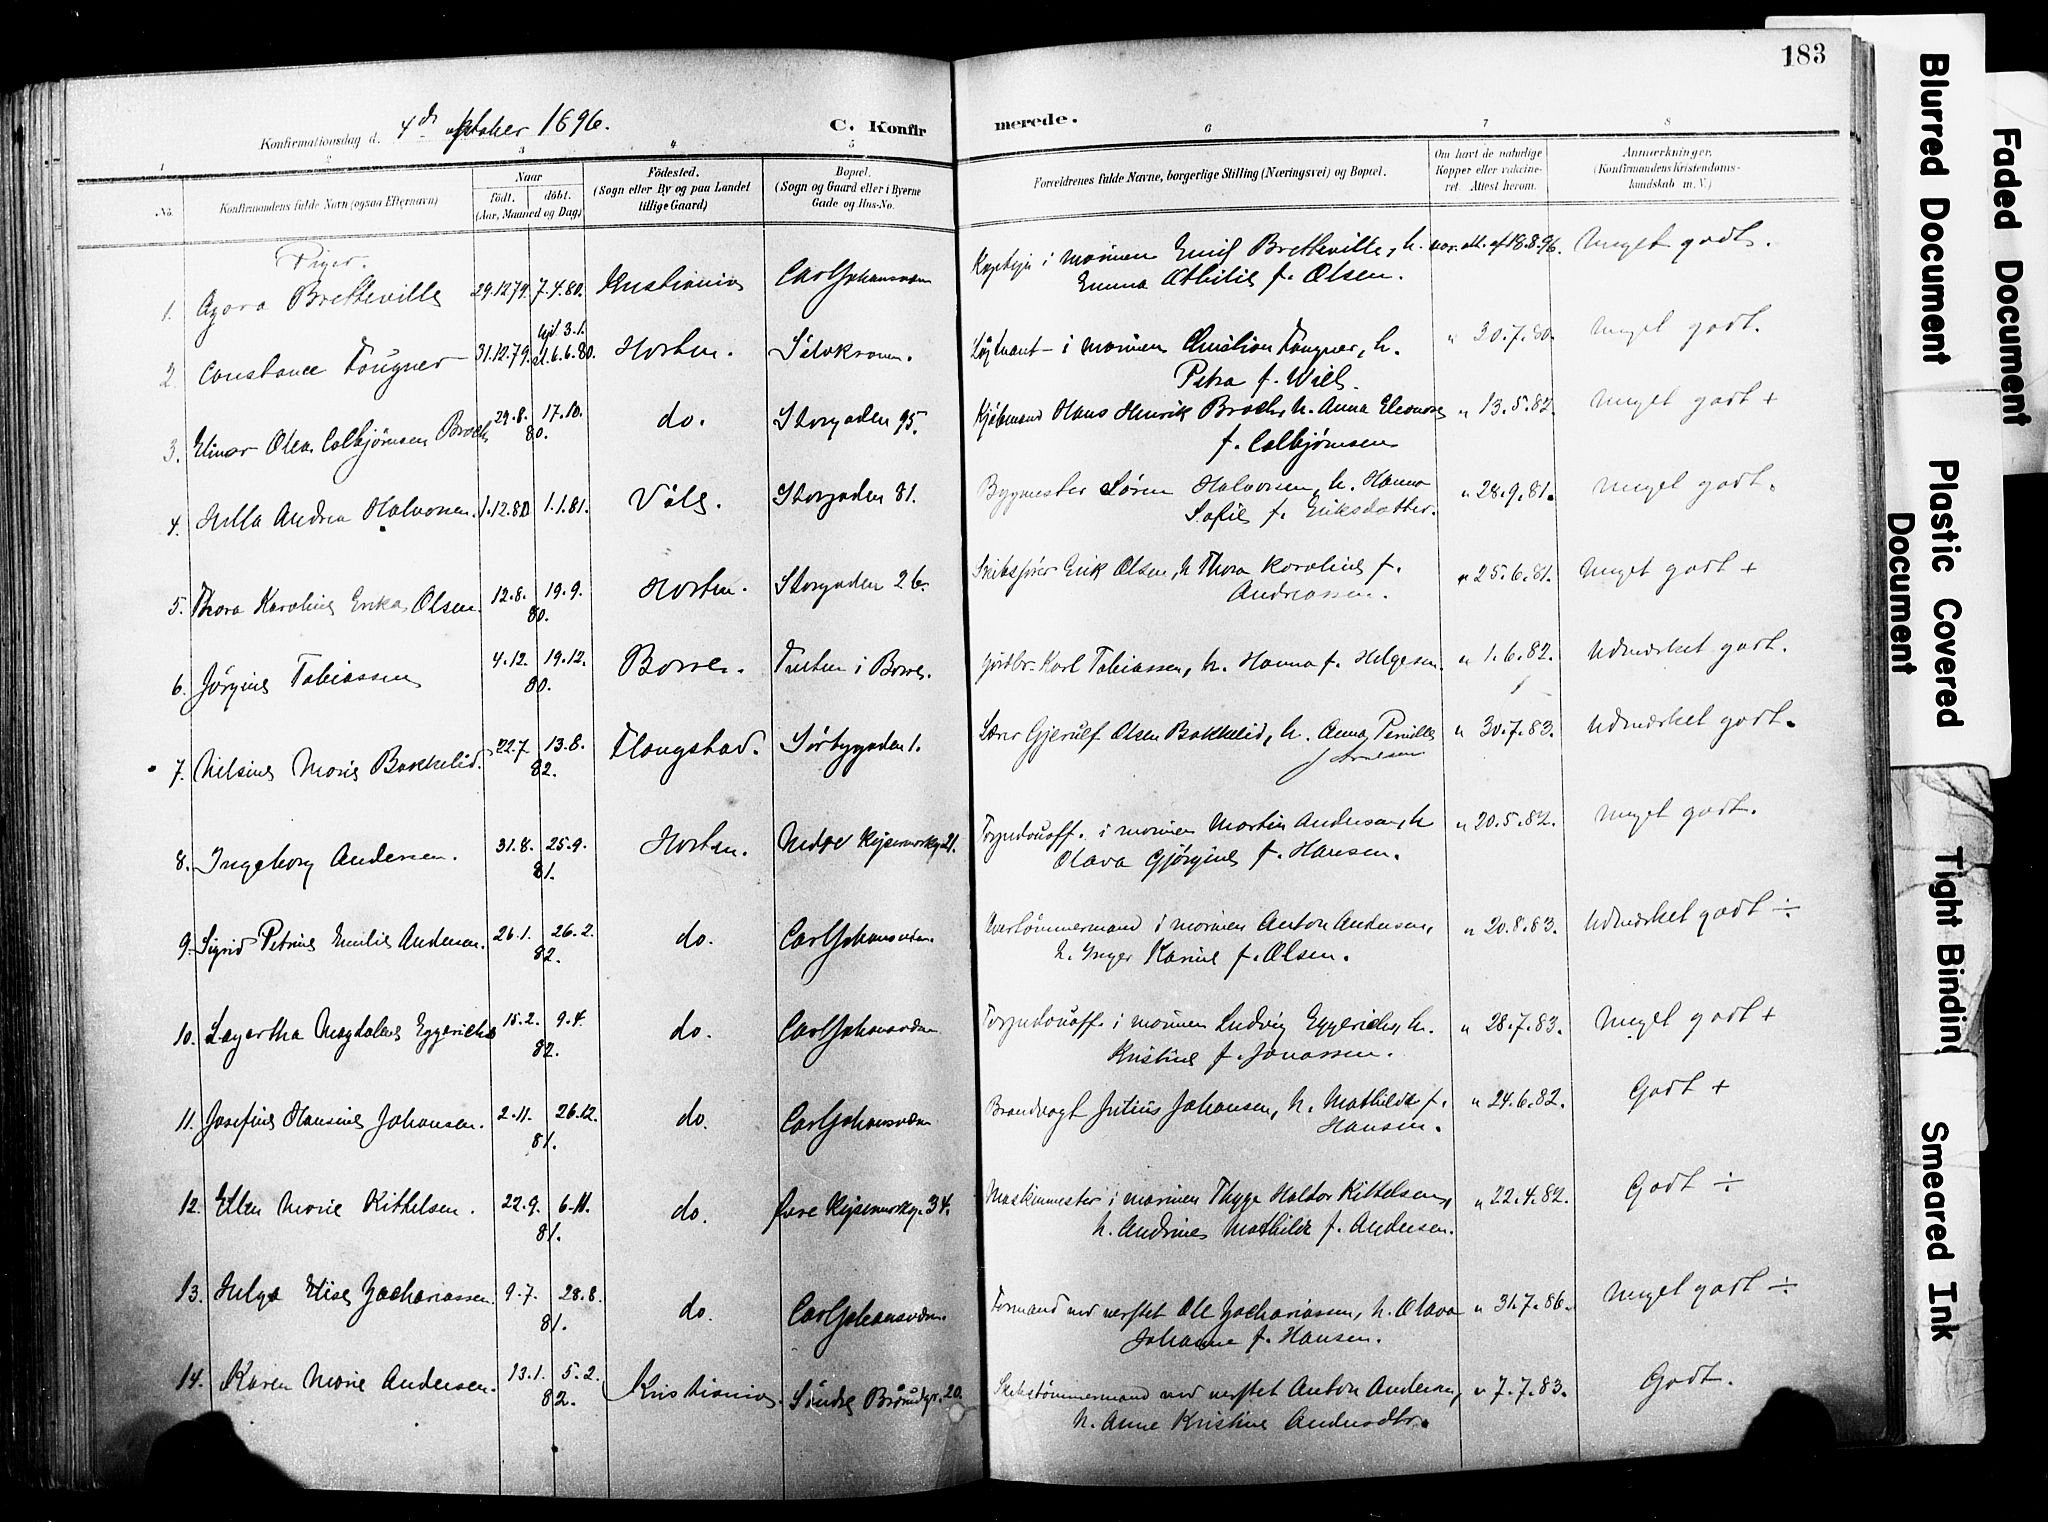 183
Konfirmationsdag d. 4de oktober 1896. C. Konfir merede.
1 2 3 4 5 6 7 8
No.
Konfirmandens fulde Navn (ogsaa Efternavn)
Naar
födt. döbt.
(Aar, Maaned og Dag)
Födested.
(Sogn eller By og paa Landet
tillige Gaard)
Bopæl.
(Sogn og Gaard eller i Byerne
Gade og Hus-No.
Forældrenes fulde Navne, borgerlige Stilling (Næringsvei) og Bopæl.
Om havt de naturlige
Kopper eller vaksine-
ret. Attest herom.
Anmærkninger.
(Konfirmandens Kristendoms-
kundskab m. V.)
Piger.
1. Agora Bretteville 29.12.79. 7.4.80. Kristiania Carljohansværn Kaptejn i marinen Emil Bretteville, h. vac. att. af 18.8.96. Meget godt.
Emma Athilie f. Olsen.
2. Constance Fougner 31.12.79. hjd 3.1.
st. 6.6.80. Horten. Sølvkronen. Løjtnant i marinen Christian Fougner, h. " 30.7.80. Meget godt.
Petra f. Wiel.
3. Elinor Olea Colbjørnsen Broch 29.8. 17.10.
80. do. Storgaden 95. Kjøbmand Hans Henrik Broch, h. Anna Eleonore " 13.5.82. Meget godt +
f. Colbjørnsen
4. Hilla Andrea Halvorsen. 1.12.80 1.1.81. Våle. Storgaden 81. Bygmester Søren Halvorsen, h. Hanna " 28.9.81. Meget godt.
Sofie f. Eriksdatter.
5. Thora Karoline Erika Olsen. 12.8. 19.9.
80. Horten. Storgaden 26. Skibsfører Erik Olsen, h Thora Karoline f. " 25.6.81. Meget godt +
Andreassen.
6. Jørgine Tobiassen 4.12. 19.12.
80. Borre. Tveten i Borre. Gårdbr. Karl Tobiassen, h. Hanna f. Helgesen. " 1.6.82. Udmærket godt.
7. Nilsine Marie Bakkelid. 22.7 13.8.
82. Flaugstad. Sørbygaden 1. Lærer Gjerulf Olsen Bakkelid, h. Anna Pernille " 30.7.83. Udmærket godt.
f Arnesen
8. Ingeborg Andersen. 31.8. 25.9.
81. Horten. Nedre Kejsemarkg. 21. Torpedouoff. i marinen Martin Andersen, h " 20.5.82. Meget godt.
Olava Gjørgine f. Hansen.
9. Sigrid Petrine Emilie Andersen. 26.1. 26.2.
82. do. Carljohansværn. Overtømmermand i marinen Anton Andersen, " 20.8.83. Udmærket godt ÷
h. Inger Karine f. Olsen.
10. Lagertha Magdalene Eggerichs 15.2. 9.4.
82. do. Carljohansværn Torpedouoff. i marinen Ludvig Eggerichs, h. " 28.7.83. Meget godt +
Kristine f. Jonassen.
11. Josefine Hansine Johansen. 2.11. 26.12.
81. do. Carljohansværn Brandvagt Julius Johansen, h. Mathilde f. " 24.6.82. Godt +
Hansen.
12. Ellen Marie Kittelsen. 22.9. 6.11.
81. do. Øvre Kejsemarkg. 34. Maskinmester i marinen Thyge Haldor Kittelsen, " 22.4.82. Godt ÷
h. Andrine Mathilde f. Andersen.
13. Helga Elise Zachariassen. 9.7. 28.8.
81. do. Carljohansværn. Formand ved verftet Ole Zachariassen, h. Olava " 31.7.86. Meget godt ÷
Johanne f. Hansen.
14. Karen Marie Andersen. 13.1. 5.2.
82. Kristiania. Søndre Brårudgt. 20. Skibstømmermand ved verftet Anton Andersen, " 7.7.83. Godt.
h. Anne Kristine Andersdtr.
Faded Document
Blurred Document
Plastic Covered
Document
Tight Bindin
Smeared Ink